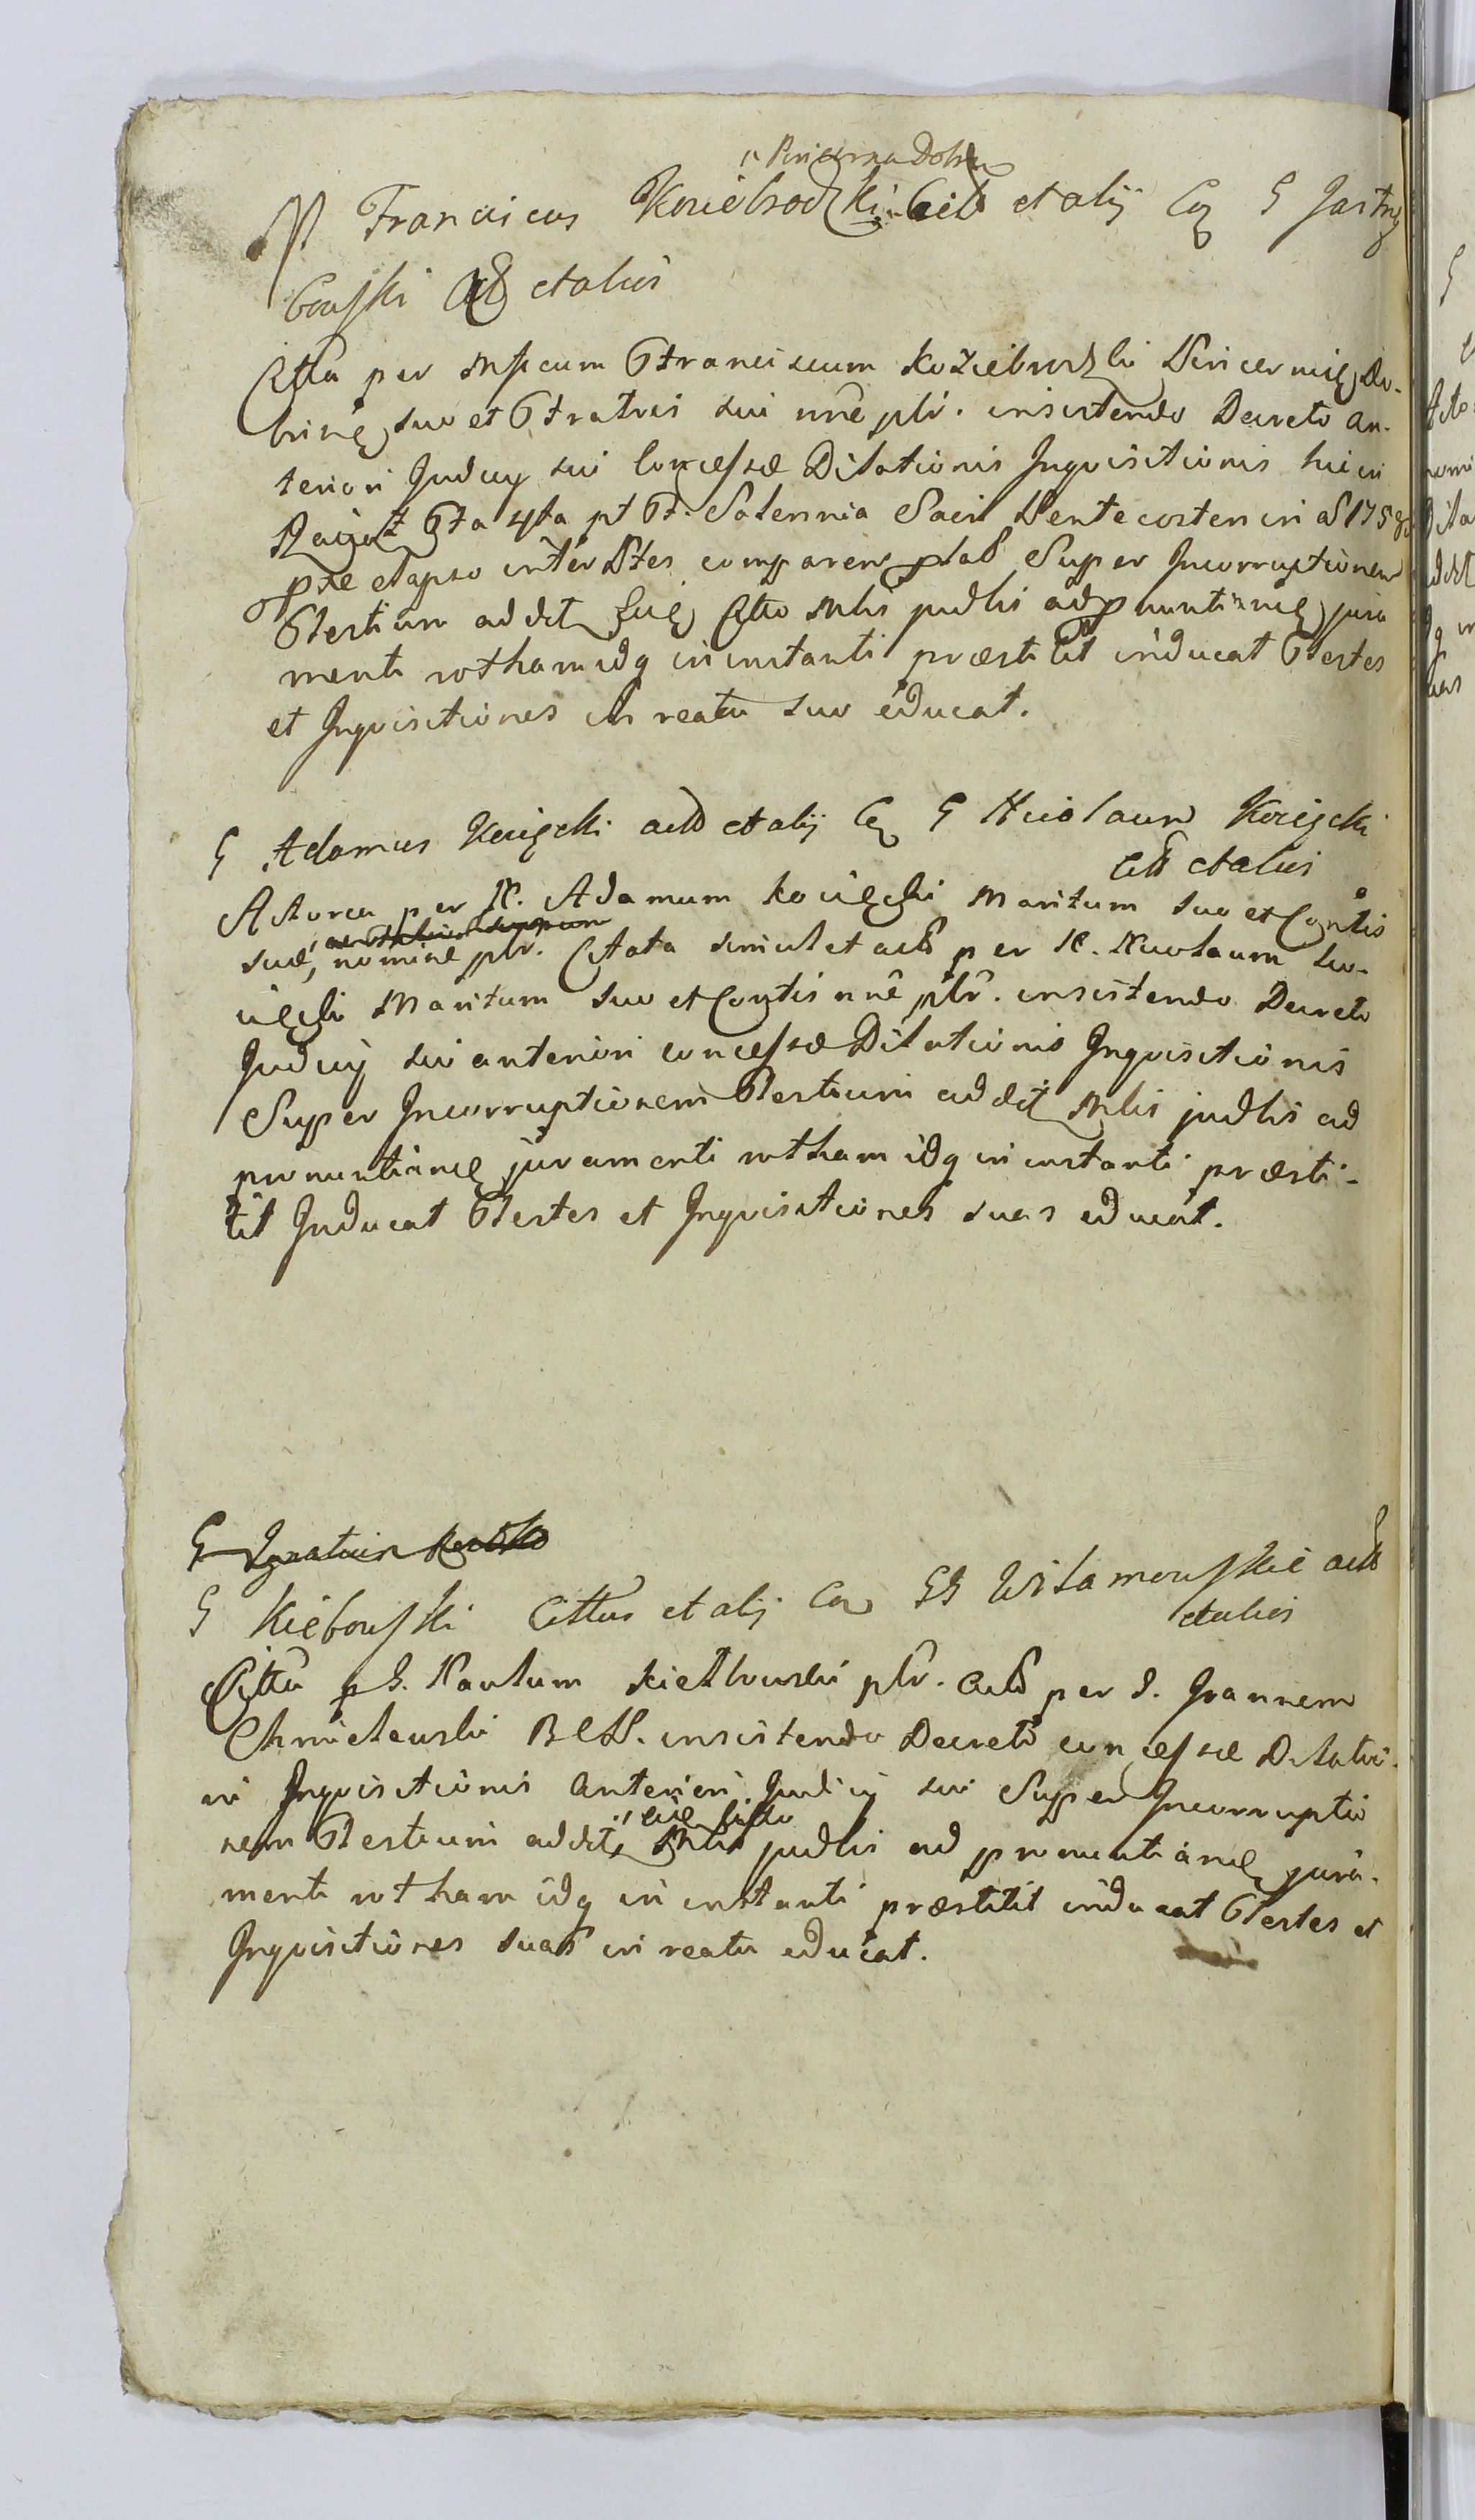 "Pincerna Dobr
M Franciscus Koziebrodzki et alij Cq G Jastrzę
bowski et alios
Citta per Mfcum Franciscum Koziebrodzki Pincernię Do-
brine, suo et Fratris sui nñe plr. insistendo Decreto an-
teriori Judicy sui concessæ Dilationis Inquisitionis hic in
Fta 4ta pt F. Solennia Sacri Pentecosten in aõ 175
elapso inter Ptes comparens Super Incorruptionem
Testium addit Mlis judlis ad pronuntianę jura
menti rotham idq in instanti præstitit inducat Testes
et Inquisitiones in reatu suo educat.
G Adamus Kocięcki actõ et alij Cq G Nicolaum Kocięcki
et alios
Actorea per N. Adamum Kocięcki Maritum suo et Contis
suæ, nomine plr. Citata simul et actõ per N. Nicolaum Ko-
cięcki Maritum suo et Contis nñe plr. insistendo Decreto
Judicij sui anteriori concessæ Dilationis Inquisitionis
Super Incorruptionem Testium addit Mlis judlis ad
pronuntianę juramenti rotham idq in instanti præsti-
tit Inducat Testes et Inquisitiones suas educat.
G Ignatius
G Kiełbowski Cittus et alij Co GG Wilamowskie actõ
et alios
Citta p G. Paulum Kiełbowski plr. actõ per G. Joannem
Chmielewski insistendo Decreto concessæ Dilatio-
ni Inquisitionis anteriori Judicij sui Super Incorruptio
nem Testium addit, judlis ad pronuntianę jura-
menti rotham idq in instanti præstitit inducat Testes et
Inquisitiones suas in reatu educat.